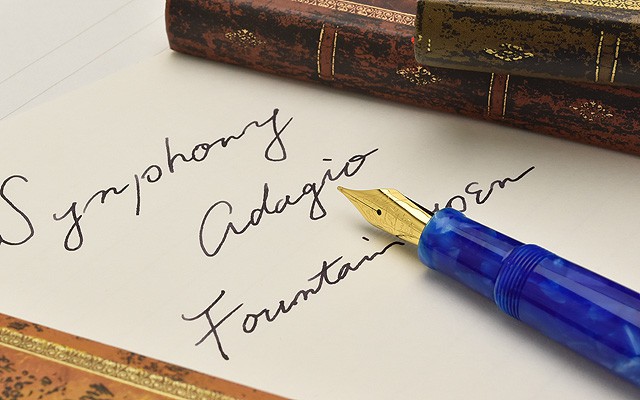 Symphony
Adagio
Fountain Pen